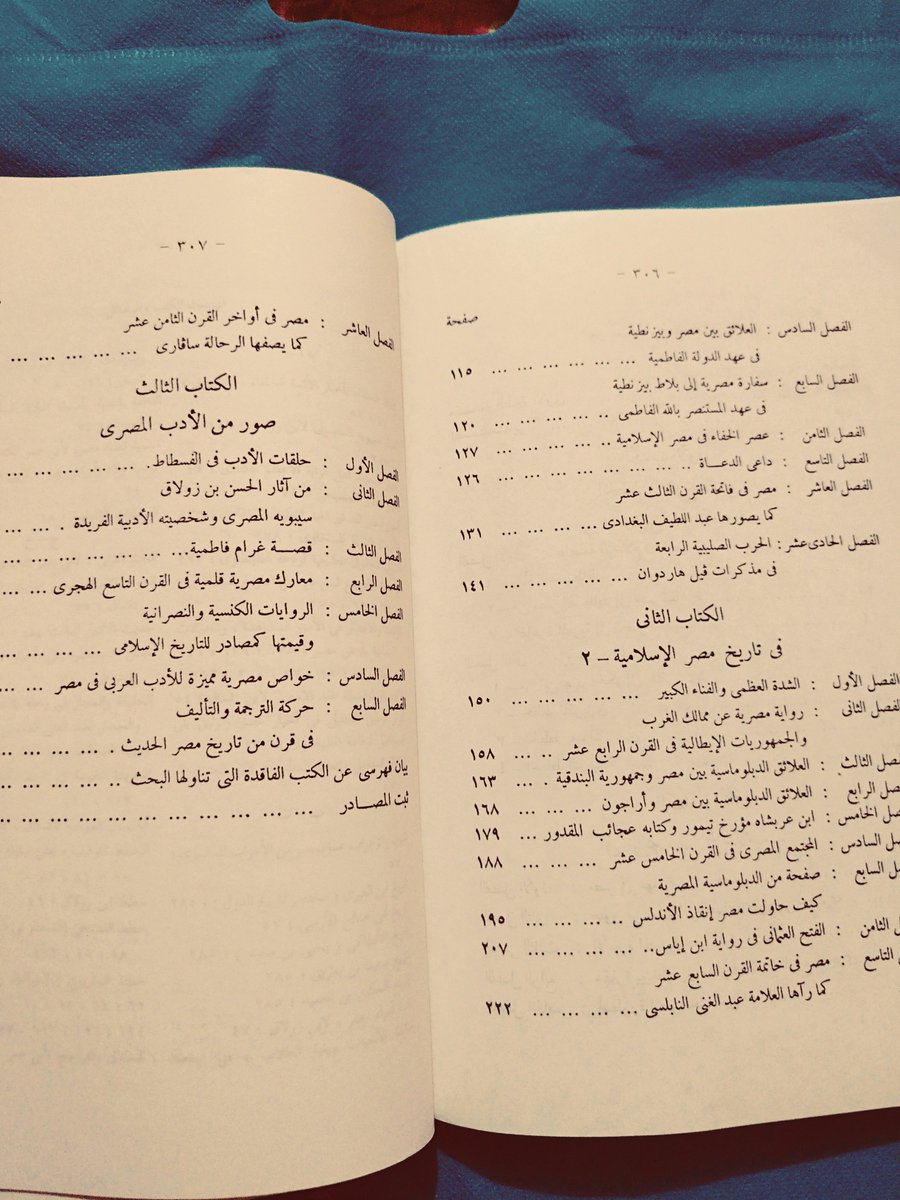 - ٣٠٦ -
صفحة
الفصل السادس : العلائق بين مصر وبيزنطية
فى عهد الدولة الفاطمية ... ... ... ... ... ... ١١٥
الفصل السابع : سفارة مصرية إلى بلاط بيزنطية
فى عهد المستنصر بالله الفاطمى .. ... ... ... ... ١٢٠
الفصل الثامن : عصر الخفاء فى مصر الإسلامية .. ... ... ... ... ١٢٧
الفصل التاسع : داعى الدعاة .. ... ... ... ... ... ... ... ١٢٦
الفصل العاشر : مصر فى فاتحة القرن الثالث عشر
كما يصورها عبد اللطيف البغدادى ... ... ... ... ١٣١
الفصل الحادى عشر : الحرب الصليبية الرابعة
فى مذكرات ڤيل هاردوان ... ... ... ... ... ... ١٤١
الكتاب الثانى
فى تاريخ مصر الإسلامية - ٢
الفصل الأول : الشدة العظمى والفناء الكبير ... ... ... ... ... ... ١٥٠
الفصل الثانى : رواية مصرية عن ممالك الغرب
والجمهوريات الإيطالية فى القرن الرابع عشر ... .. ١٥٨
الفصل الثالث : العلائق الدبلوماسية بين مصر وجمهورية البندقية . ... ١٦٣
الفصل الرابع : العلائق الدبلوماسية بين مصر وأراجون ... ... ... ... ١٦٨
صل الخامس : ابن عربشاه مؤرخ تيمور وكتابه عجائب المقدور ... ١٧٩
صل السادس : المجتمع المصرى فى القرن الخامس عشر ... ... ... ١٨٨
صل السابع : صفحة من الدبلوماسية المصرية
كيف حاولت مصر إنقاذ الأندلس .. ... ... ... ... ١٩٥
ل الثامن : الفتح العثمانى فى رواية ابن إياس.. ... ... ... ... ٢٠٧
ل التاسع : مصر فى خاتمة القرن السابع عشر
كما رآها العلامة عبد الغنى النابلسى ... ... ... ... ٢٢٢
- ٣٠٧ -
الفصل العاشر : مصر فى أواخر القرن الثامن عشر
كما يصفها الرحالة ساڤارى ... ... ... ... ...
الكتاب الثالث
صور من الأدب المصرى
الفصل الأول : حلقات الأدب فى الفسطاط. ... ... ... ... ... ...
الفصل الثانى : من آثار الحسن بن زولاق
سيبويه المصرى وشخصيته الأدبية الفريدة . ... ... ...
الفصل الثالث : قصة غرام فاطمية... ... ... ... ... ... ... ...
الفصل الرابع : معارك مصرية قلمية فى القرن التاسع الهجرى ... ...
الفصل الخامس : الروايات الكنسية والنصرانية
وقيمتها كمصادر للتاريخ الإسلامى ... ... ... ... ...
الفصل السادس : خواص مصرية مميزة للأدب العربى فى مصر ... ...
الفصل السابع : حركة الترجمة والتأليف
فى قرن من تاريخ مصر الحديث . ... ... ... ... ...
بيان فهرسى عن الكتب الفاقدة التى تناولها البحث .. ... ... ... ...
ثبت المصادر ... ... ... ... ... ... ... ... ... ...